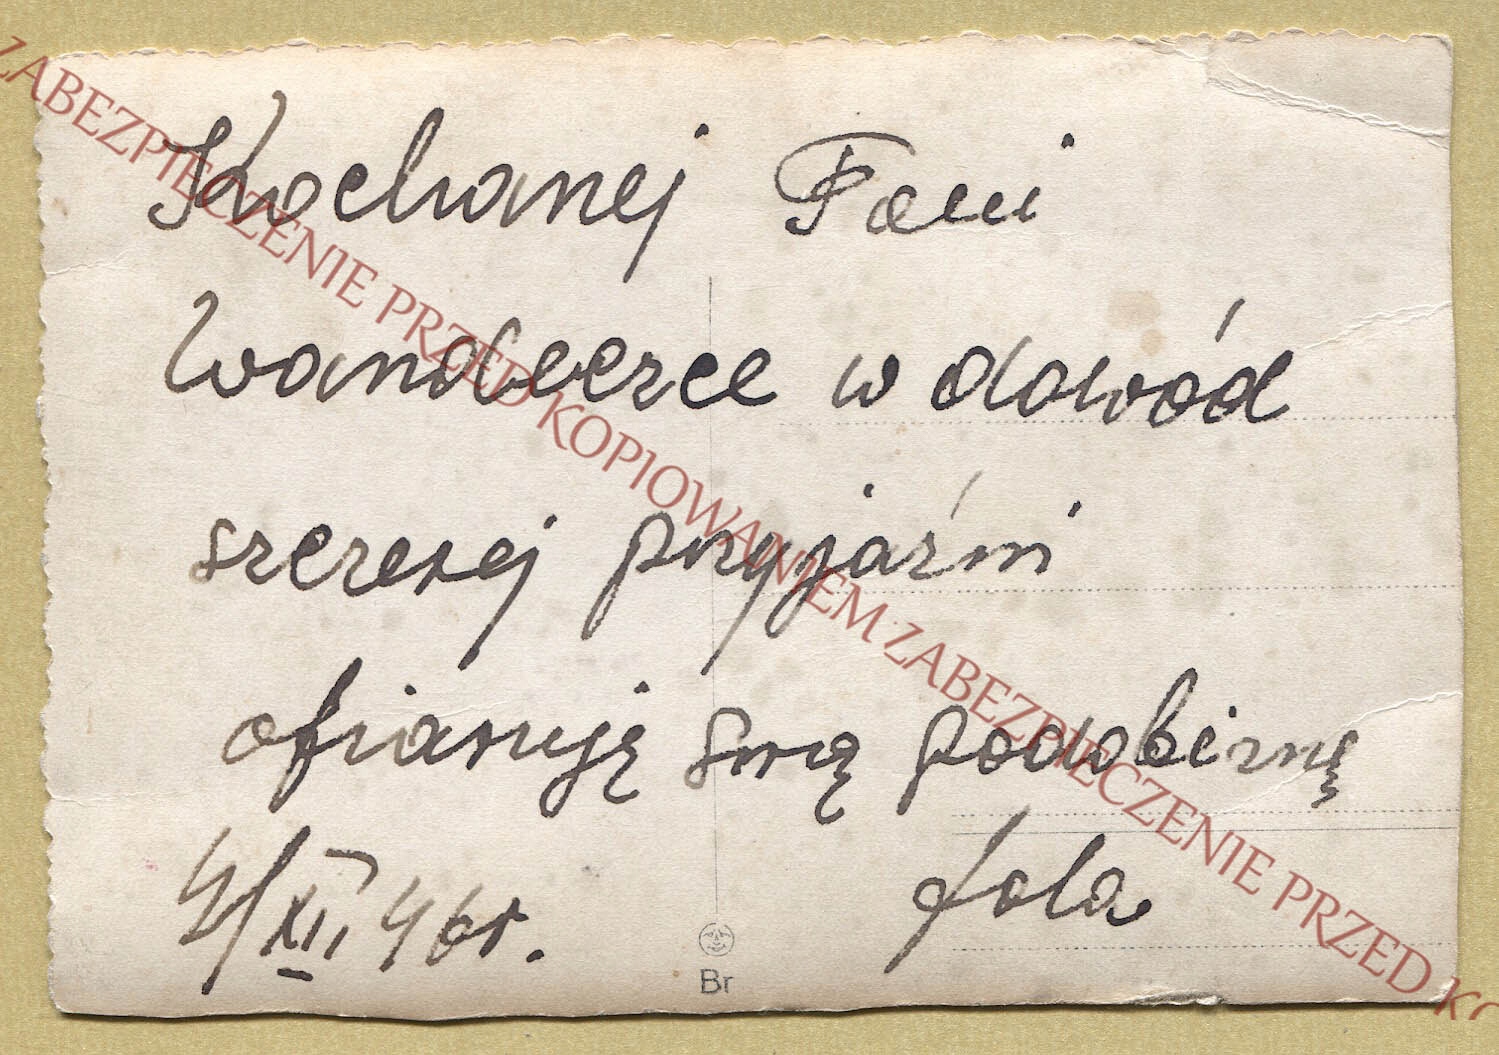 Kochanej Pani
Wandeczce w dowód
szczerej przyjaźni
ofiaruję swą podobiznę
4/XII 46r. Jola
Br
ZABEZPIECZENIE PRZED KOPIOWANIEM ZABEZPIECZENIE PRZED KO